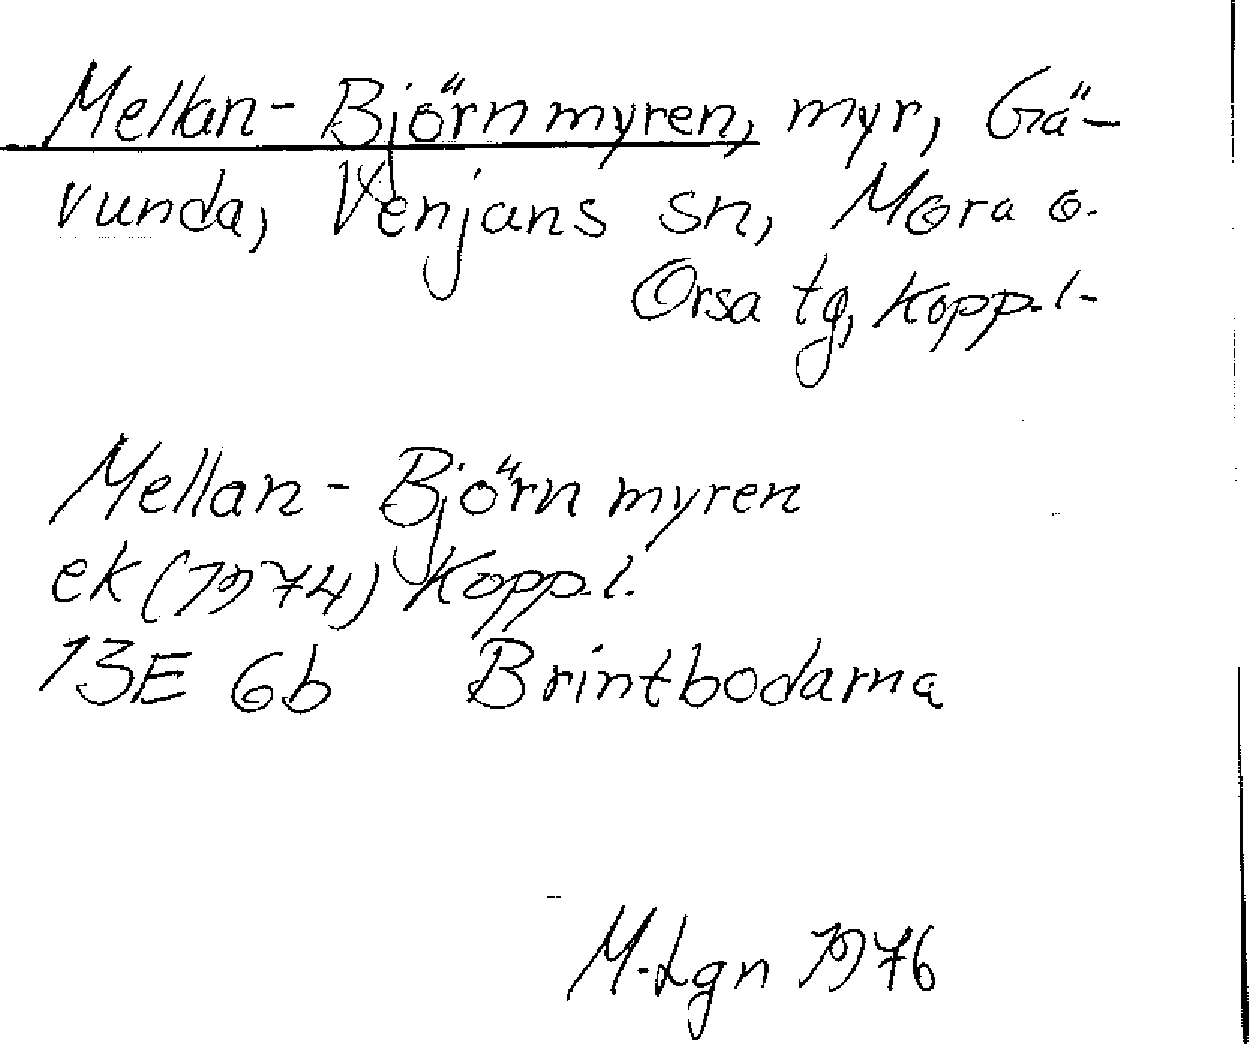 Mellan-Björnmyren, myr, Gä-
vunda, Venjans sn, Mora o.
Orsa tg, Kopp.l.
Mellan-Björnmyren
ek (1974) Kopp.l.
13E 6b Brintbodarna
M.Lgn 1976